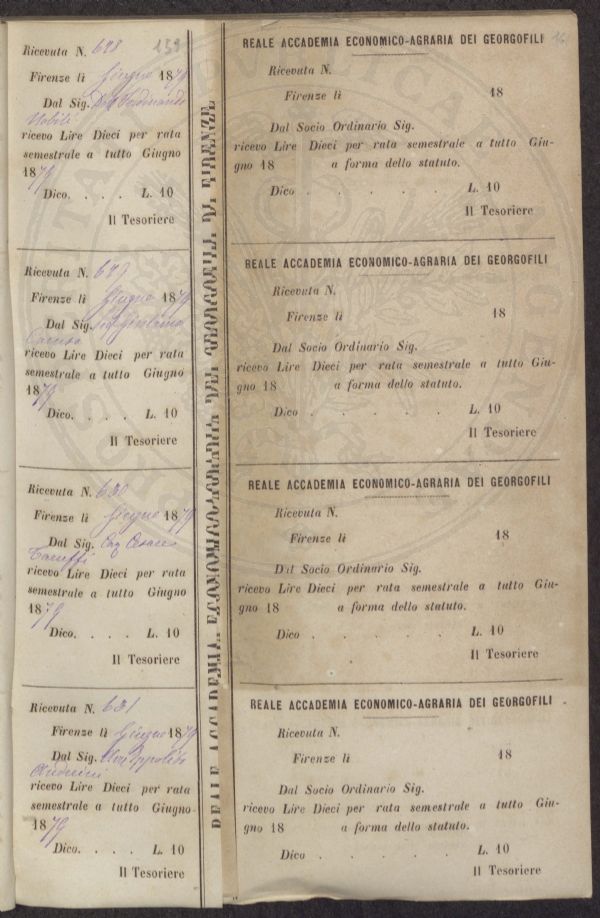 Ricevuta N. 628
159
Firenze lì Giugno 1879
Dal Sig. Dott Ferdinando
Nobili
ricevo Lire Dieci per rata
semestrale a tutto Giugno
1879
Dico. . . . L. 10
Il Tesoriere
Ricevuta N. 629
Firenze lì Giugno 1879
Dal Sig.
Caruso
ricevo Lire Dieci per rata
semestrale a tutto Giugno
1879
Dico. . . . L. 10
Il Tesoriere
Ricevuta N. 630
Firenze lì Giugno 1879
Dal Sig. Cav Cesare
Taruffi
ricevo Lire Dieci per rata
semestrale a tutto Giugno
1879
Dico. . . . L. 10
Il Tesoriere
Ricevuta N. 631
Firenze lì Giugno 1879
Dal Sig. Ippolito
Andreini
ricevo Lire Dieci per rata
semestrale a tutto Giugno
1879
Dico. . . . L. 10
Il Tesoriere
REALE ACCADEMIA ECONOMICO-AGRARIA DEI GEORGOFILI DI FIRENZE
REALE ACCADEMIA ECONOMICO-AGRARIA DEI GEORGOFILI
16
Ricevuta N.
Firenze lì 18
Dal Socio Ordinario Sig.
ricevo Lire Dieci per rata semestrale a tutto Giu-
gno 18 a forma dello statuto.
Dico . . . . . L. 10
Il Tesoriere
REALE ACCADEMIA ECONOMICO-AGRARIA DEI GEORGOFILI
Ricevuta N.
Firenze lì 18
Dal Socio Ordinario Sig.
ricevo Lire Dieci per rata semestrale a tutto Giu-
gno 18 a forma dello statuto.
Dico . . . . . L. 10
Il Tesoriere
REALE ACCADEMIA ECONOMICO-AGRARIA DEI GEORGOFILI
Ricevuta N.
Firenze lì 18
Dal Socio Ordinario Sig.
ricevo Lire Dieci per rata semestrale a tutto Giu-
gno 18 a forma dello statuto.
Dico . . . . . L. 10
Il Tesoriere
REALE ACCADEMIA ECONOMICO-AGRARIA DEI GEORGOFILI
Ricevuta N.
Firenze lì 18
Dal Socio Ordinario Sig.
ricevo Lire Dieci per rata semestrale a tutto Giu-
gno 18 a forma dello statuto.
Dico . . . . . L. 10
Il Tesoriere